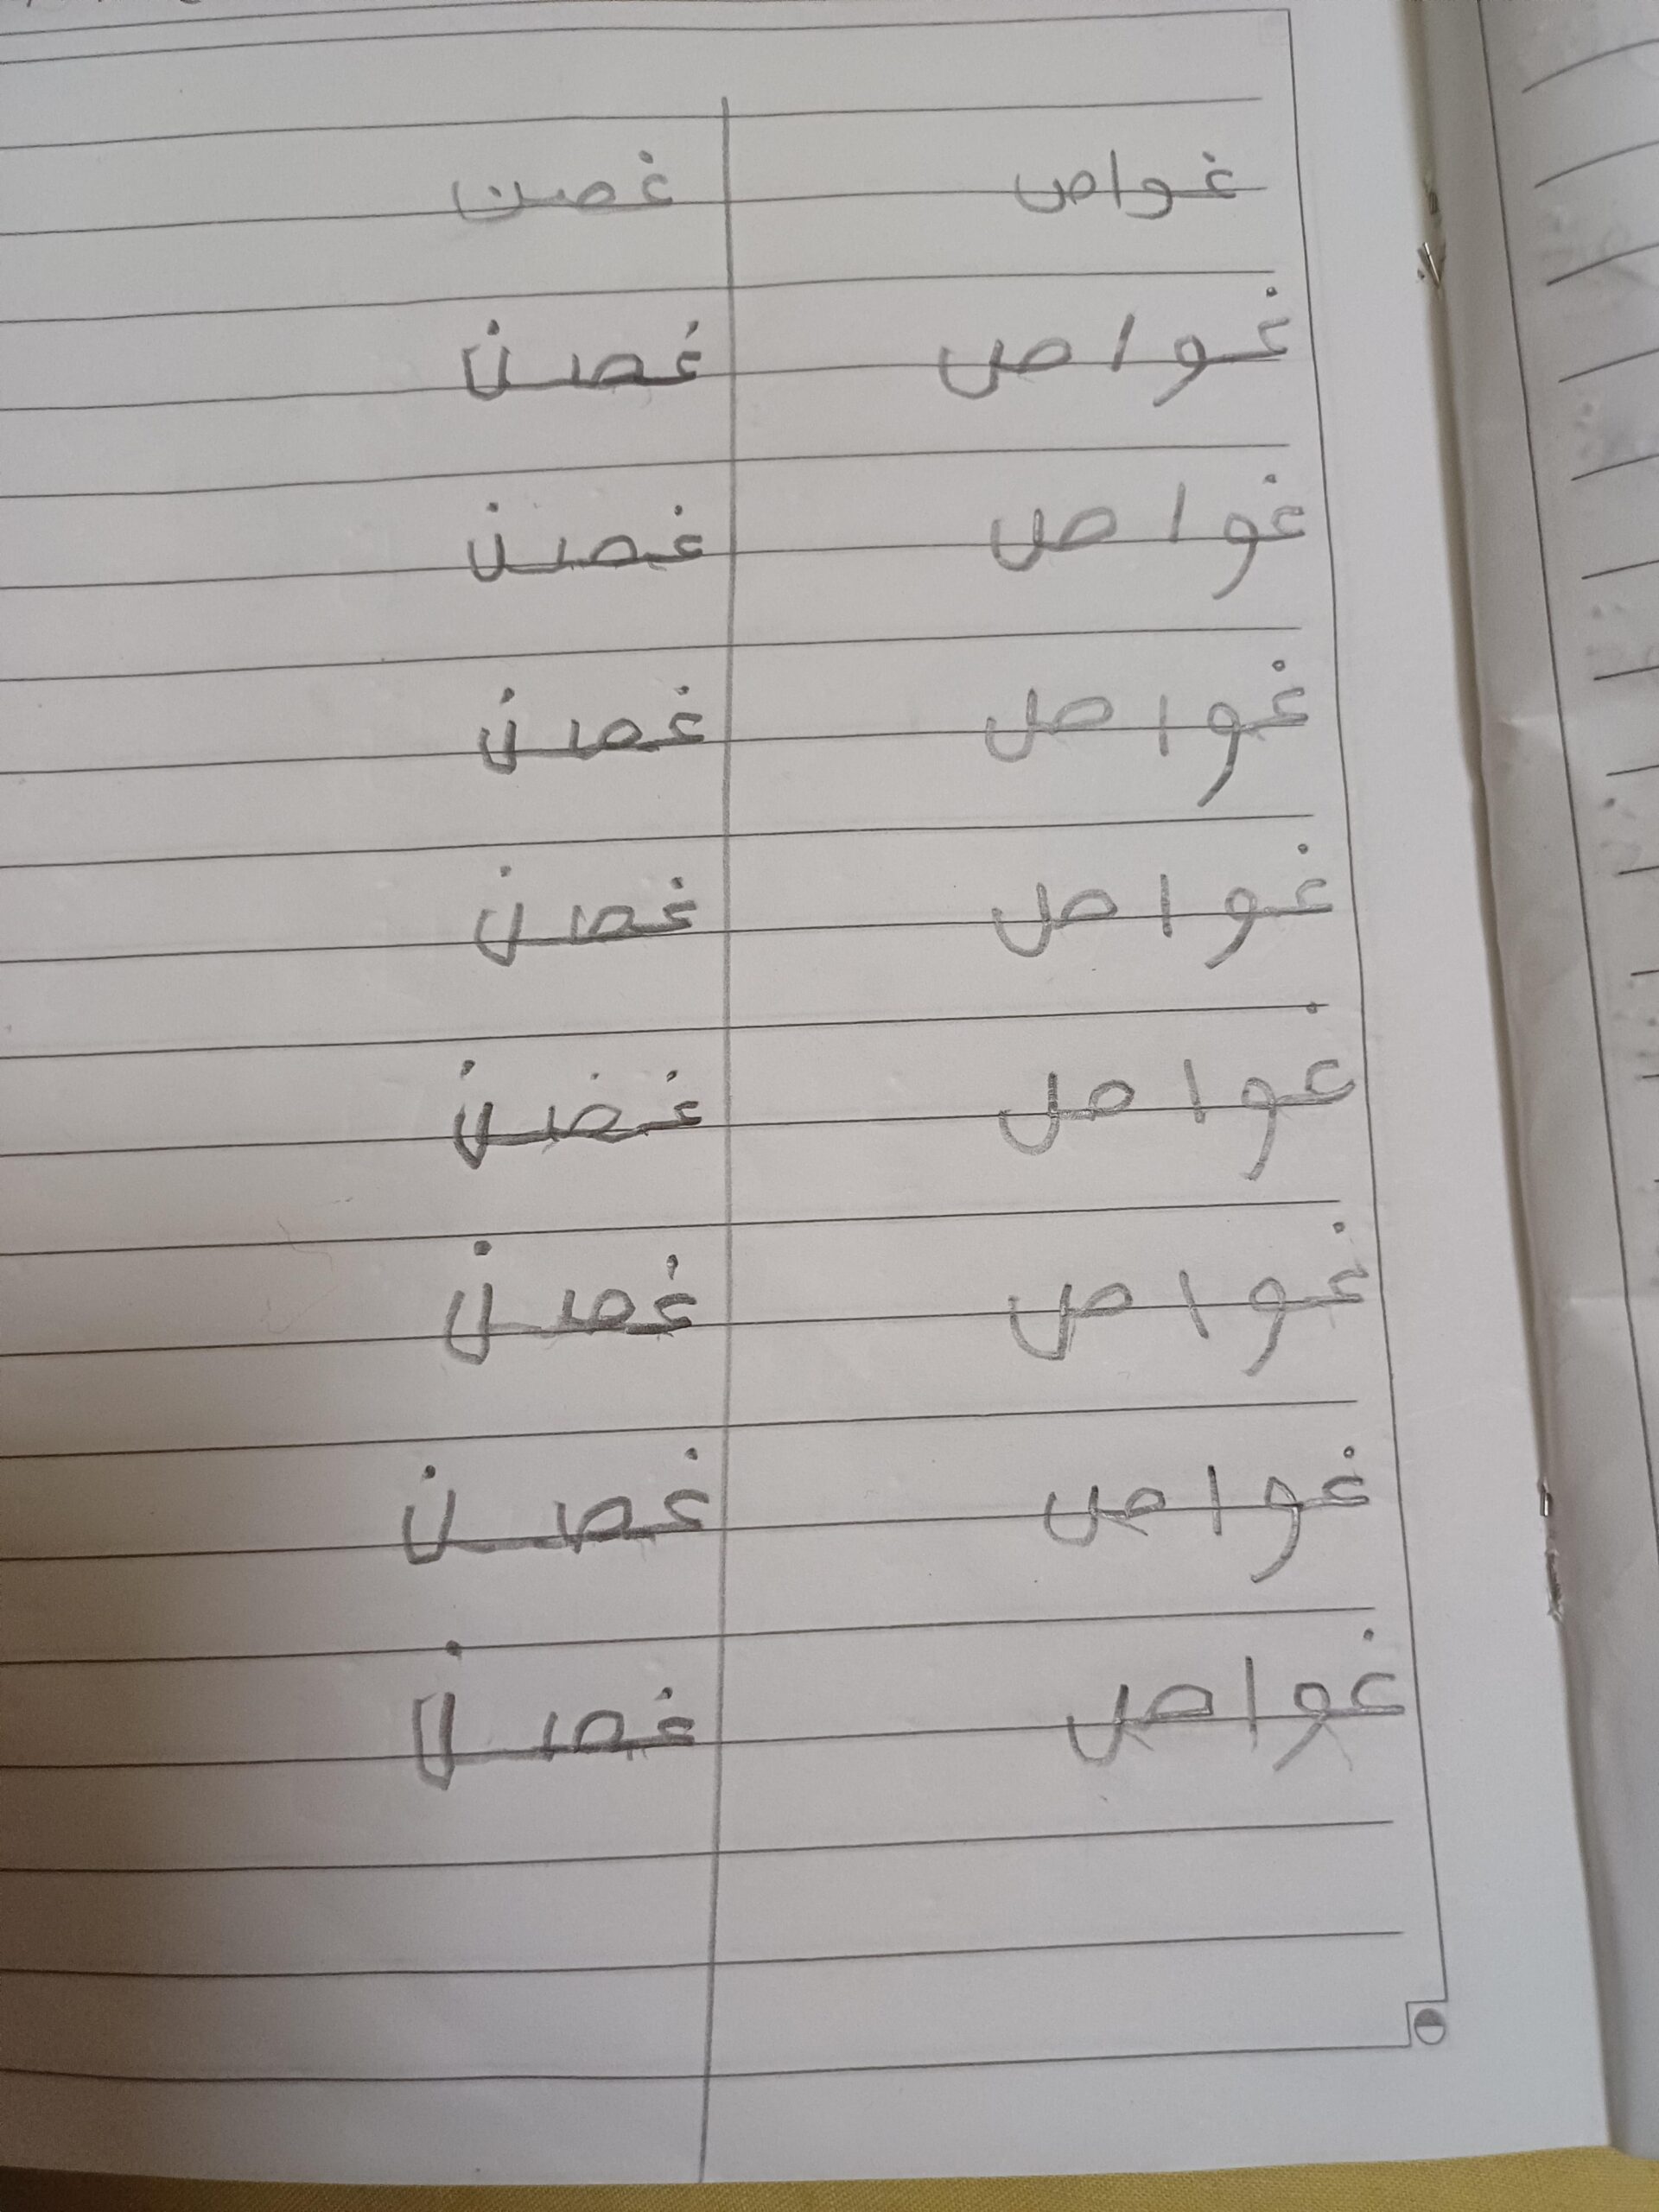 غواص غصن
غواص غصن
غواص غصن
غواص غصن
غواص غصن
غواص غضن
غواص غصن
غواص غصن
غواص غصن